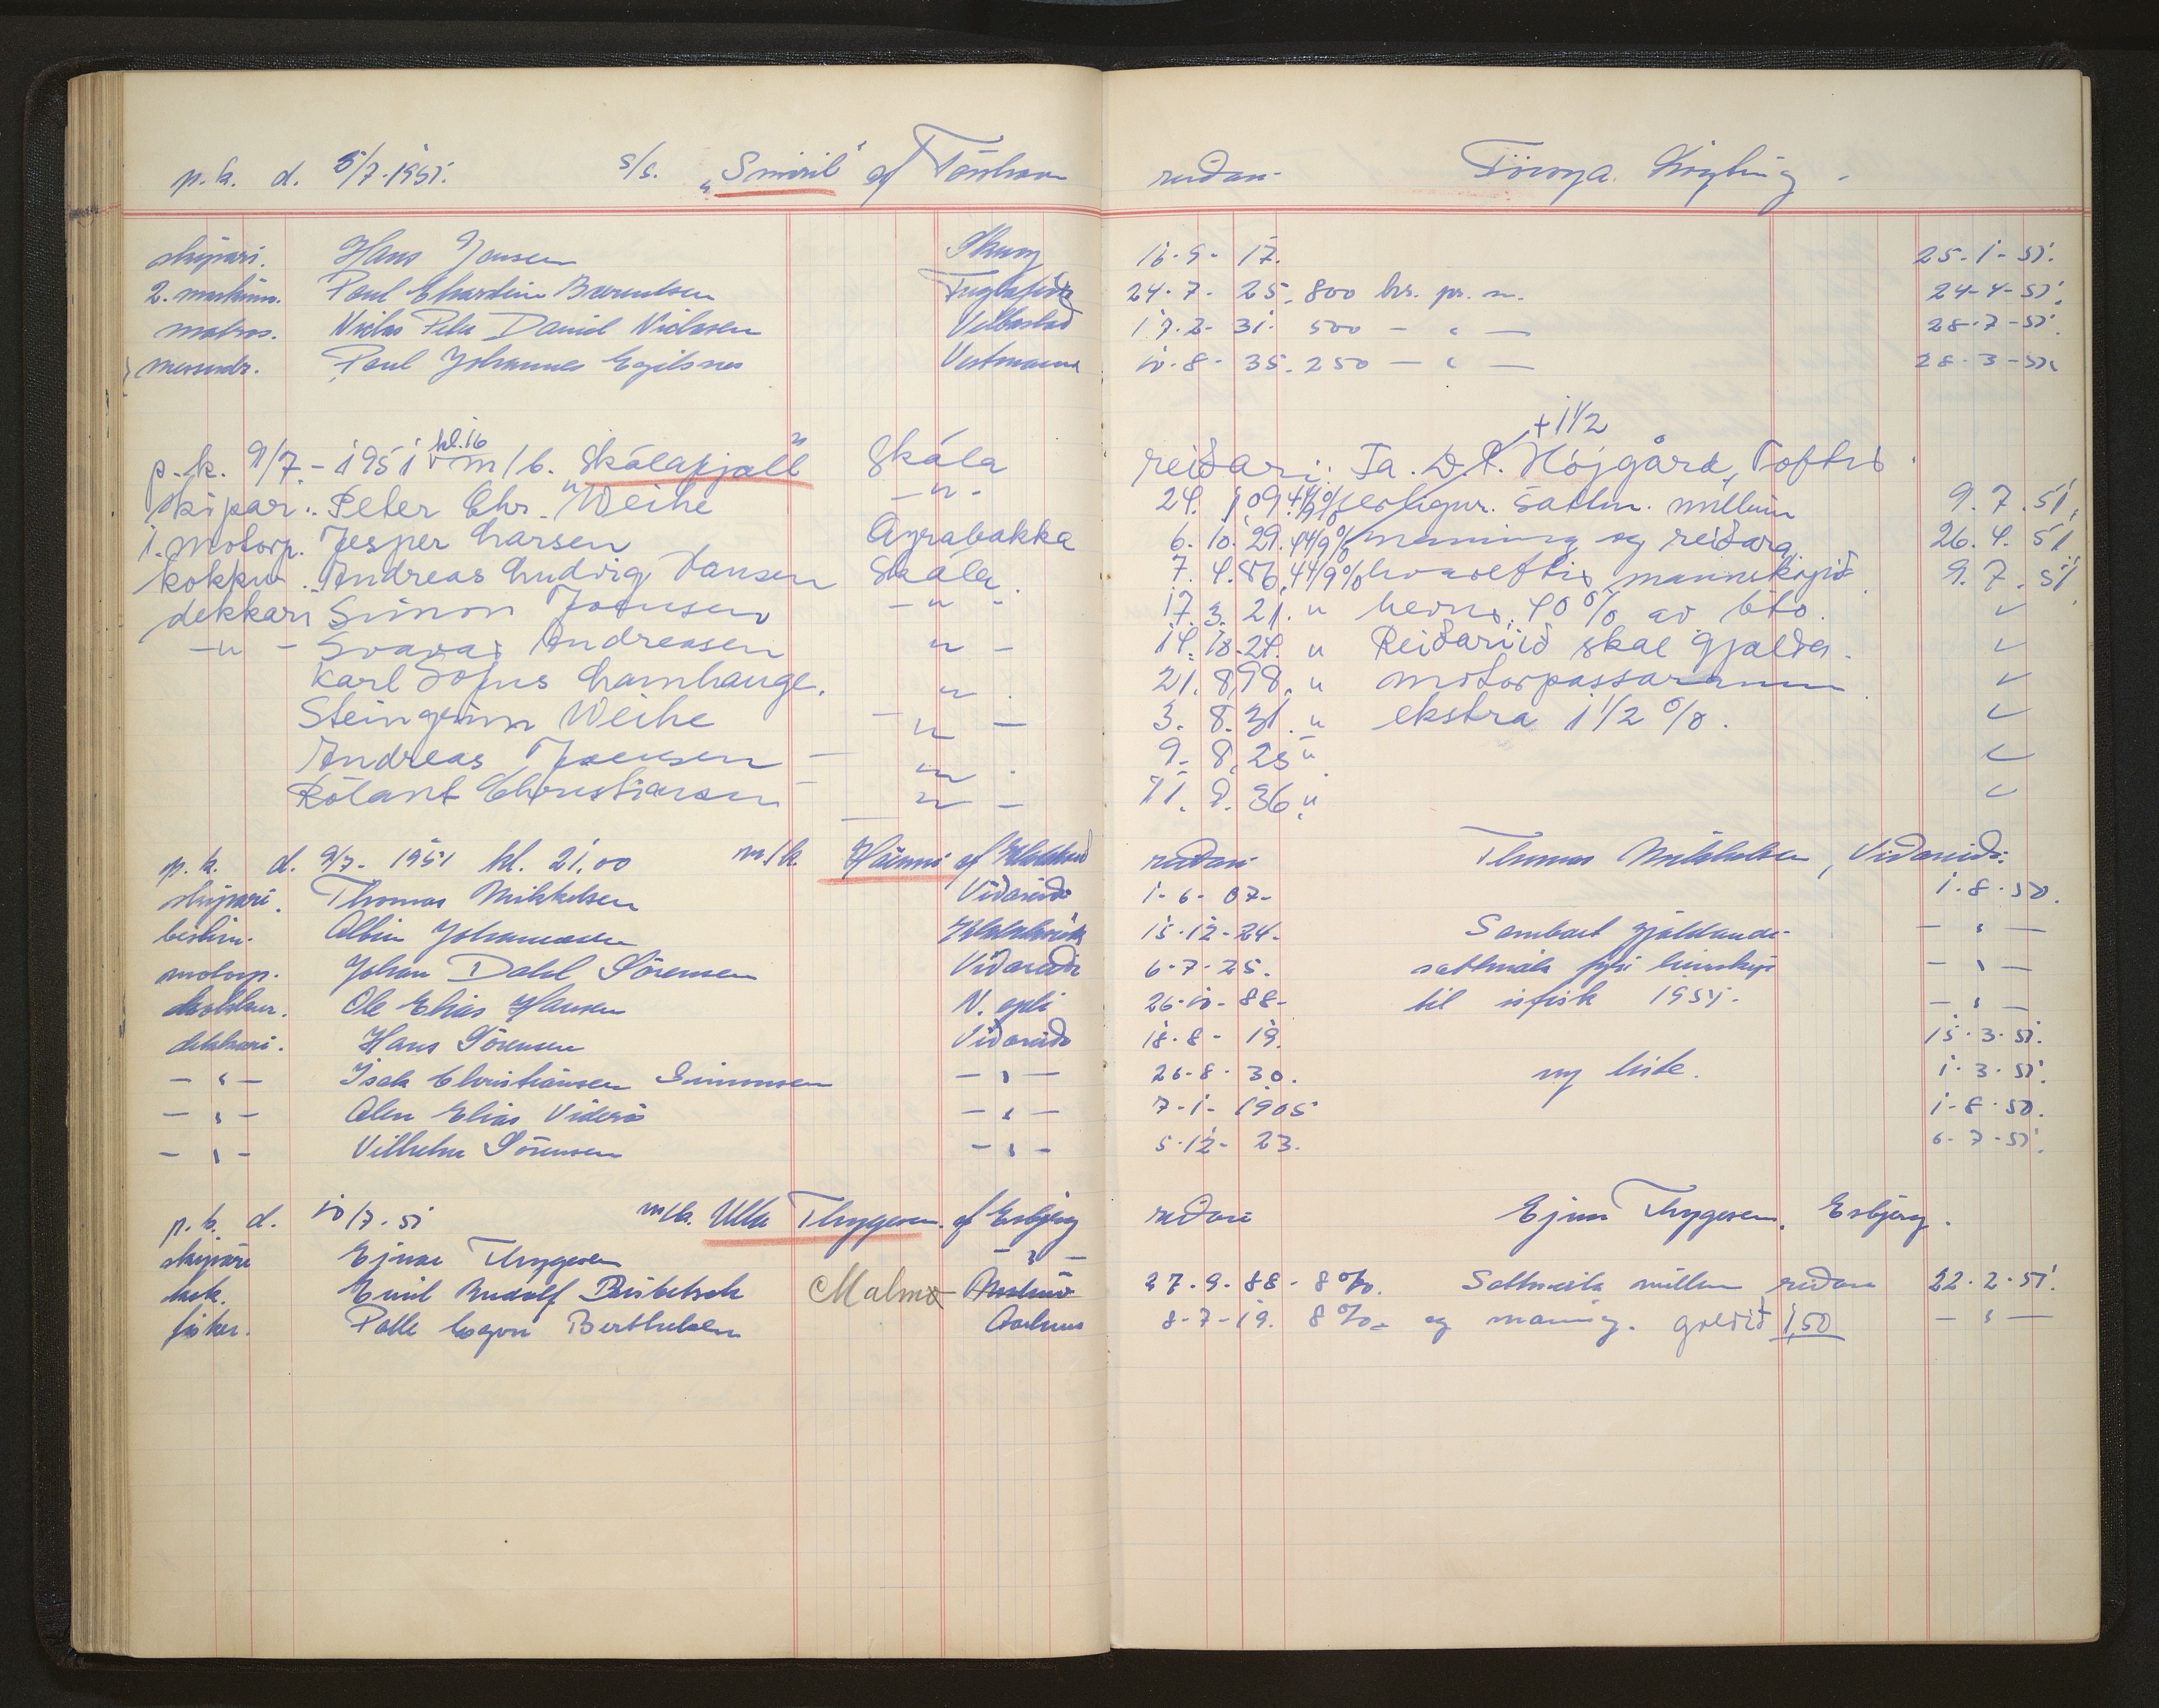 p.k. d. 5/7-1951. s/s. „Smiril“ af Tórshavn reiðari Föroya Lögting.
skipari. Hans Jensen 16-9-17. 25-1-51.
2. maskinm. Poul Barentsen Fuglafirði 24-7-25. 800 kr. pr. m. 24-4-51.
matros. Niclas Peter Daniel Niclasen Velbastað 17-2-31. 500 — " — 28-7-51.
messedr. Poul Johannes Egilsnes Vestmanna 10-8-35. 250 — " — 28-3-51.
+ 1 1/2
p.k. 9/7-1951 kl. 16 m/b. „Skálafjall“ Skála reiðari: Fa. D.P. Højgård, Toftir.
skipari. Peter Chr. Weihe —"— 24. 1 09. 4 4/9% serligur. sáttm. millum 9.7.51.
1. motorp. Jesper Larsen Æyrabakka 6.10.29. 4 4/9% manning og reiðara 26.4.51
kokkur. Andreas Ludvig Hansen Skála. 7.4.86. 4 4/9% hvareftir mannskapið 9.7.51.
dekkari Simon Joensen —"— 17.3.21. " hevur 40% av bto. ✓
—"— Svavar Andreasen " — 14.10.24. " Reiðaríið skal gjalda ✓
Karl Sofus Lamhauge. " . 21.8.98. " motorpassaranum ✓
Steingrim Weihe — " — 3.8.31. " ekstra 1 1/2 %. ✓
Andreas Joensen — " . 9.8.25 " ✓
Rólant Christiansen — " — 11.9.36. " ✓
p.k. d. 9/7-1951 kl. 21,00 m/k. af reiðari Thomas Mikkelsen, Viðareiði.
skipari. Thomas Mikkelsen Viðareiði 1-6-07- 1.8.50.
bestm. Albin Johannesen 15-12-24- Sambært gjaldandi — " —
motorp. Johan Dahl Sörensen Viðareiði 6-7-25. sáttmála fyri — " —
kokkur. Ole Elias Hansen N. 26-10-88- til ísfisk 1951. — " —
dekkari. Hans Sörensen Viðareiði 18-8-19. 15.3.51.
— " — Isak Christiansen Simonsen — " — 26-8-30. ny liste. 1.3.51.
— " — Elias Viderö — " — 7-1-1905 1-8-50.
— " — Vilhelm Sörensen — " — 5-12-23. 6-7-51.
p.k. d. 10/7-51 m/k. Ulla Thygesen af Esbjerg reiðari Ejnar Thygesen, Esbjerg.
skipari Ejnar Thygesen — " —
kok. Emil Rudolf Malmø 27-9-88- 8%. Sáttmála millum reiðara 22-2-51.
fisker. Palle Berthelsen Aarhus 8-7-19. 8%- og manning. goldið 1,50 — " —